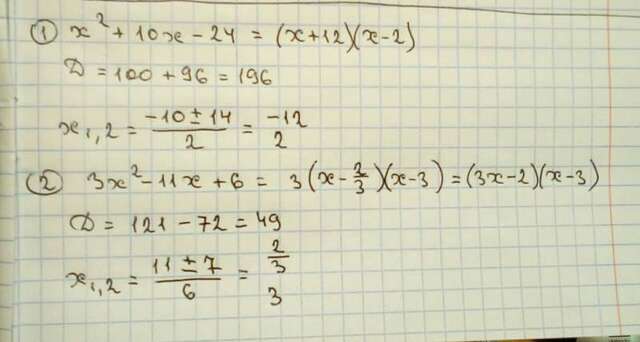 ① x² + 10x - 24 = (x+12)(x-2)
D = 100 + 96 = 196
x₁,₂ = (-10 ± 14)/2 = -12
2
② 3x² - 11x + 6 = 3(x - 2/3)(x-3) = (3x-2)(x-3)
D = 121 - 72 = 49
x₁,₂ = (11 ± 7)/6 = 2/3
3